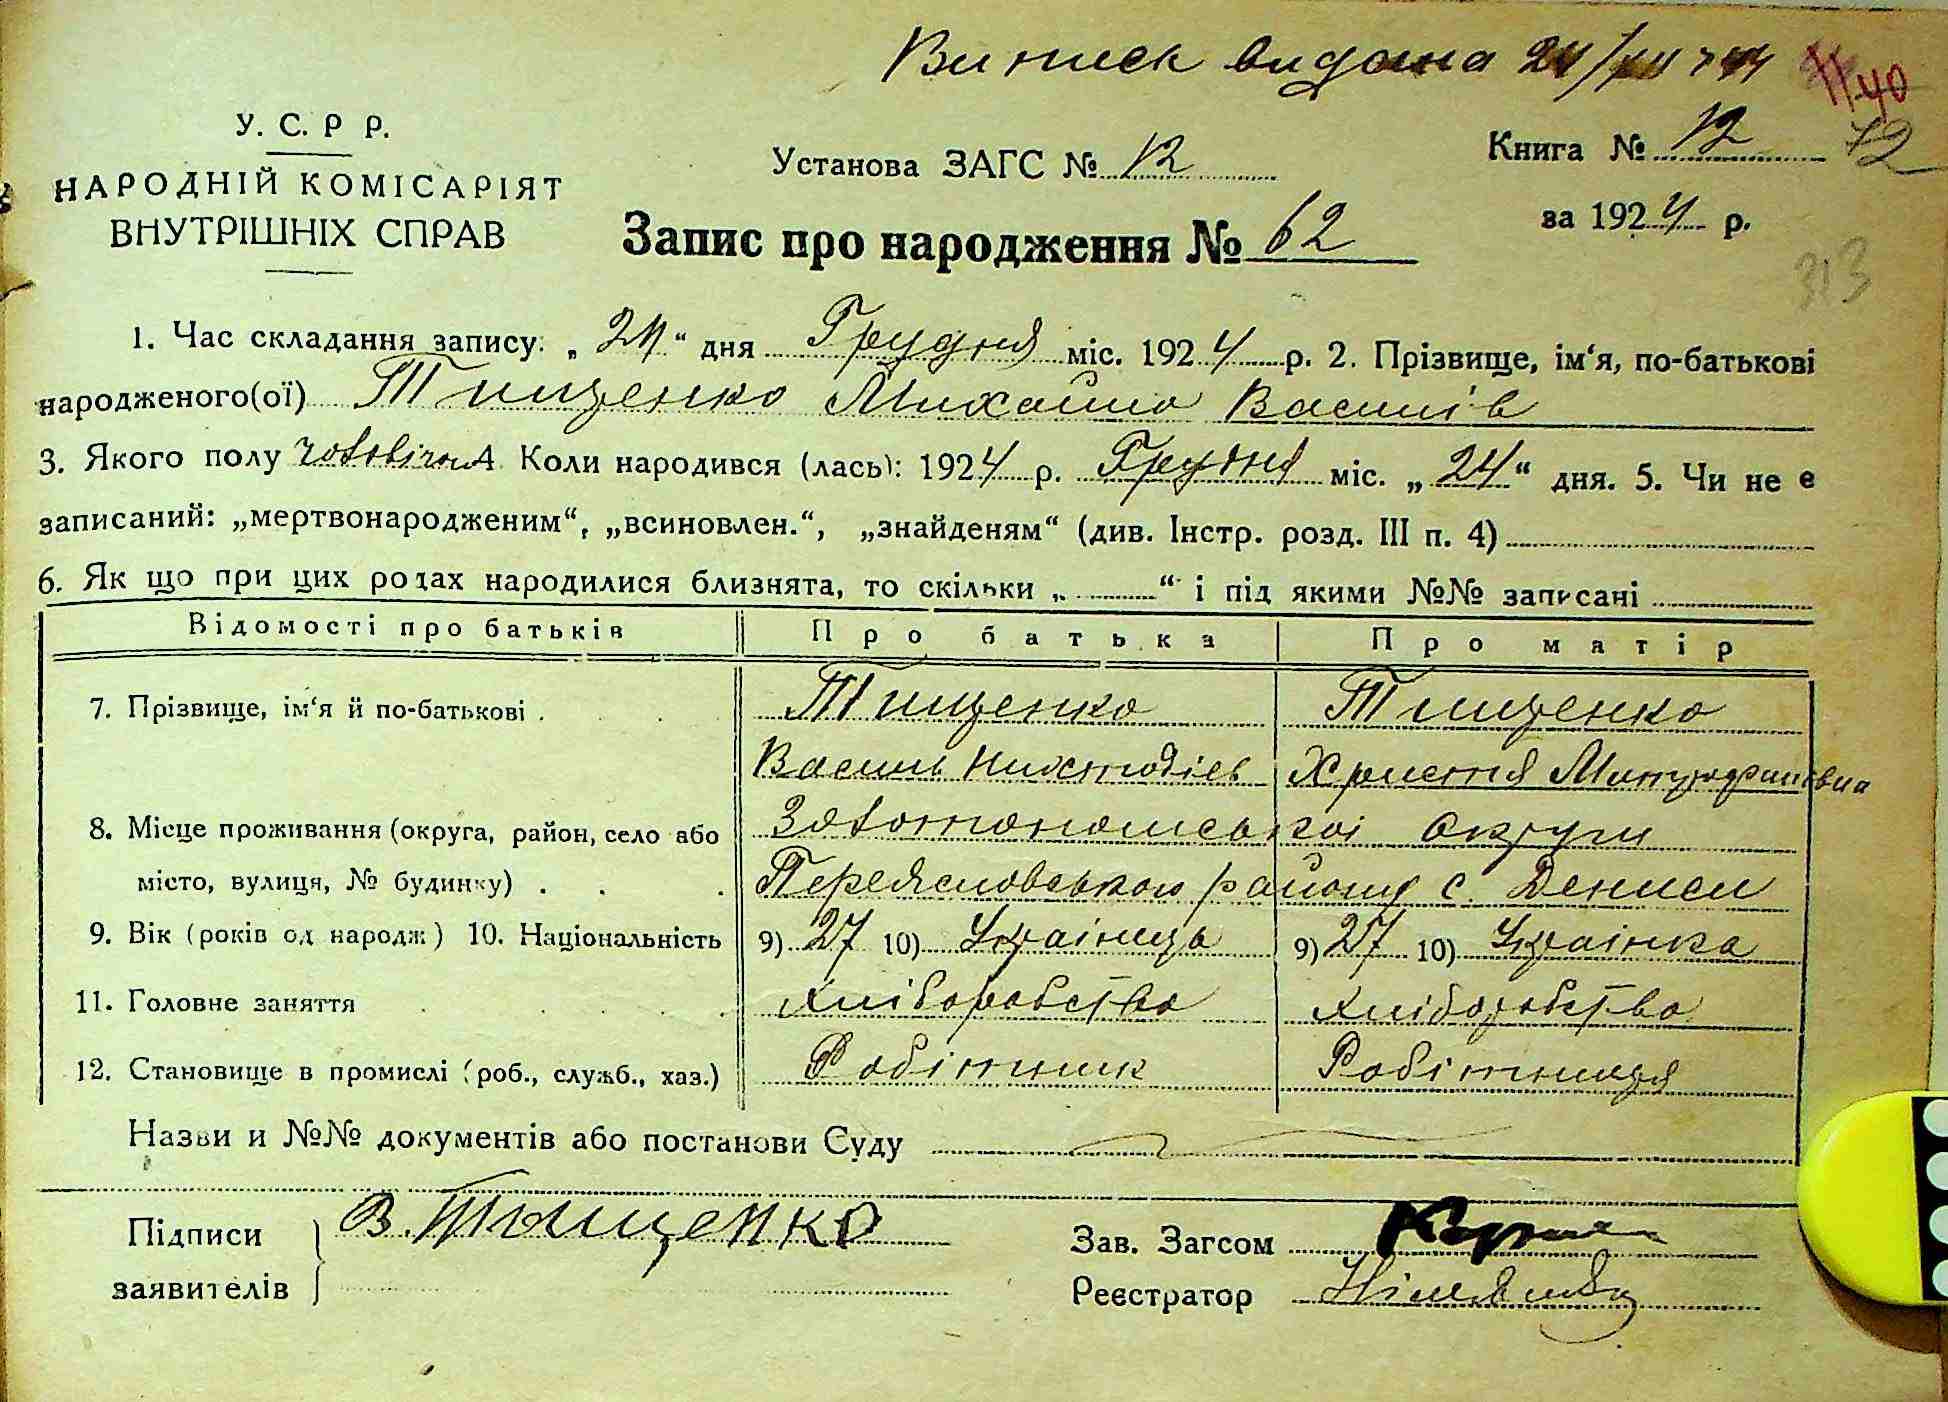 Випись видана 24/XII 24
11 40
У. С. Р Р.
НАРОДНІЙ КОМІСАРІЯТ
ВНУТРІШНІХ СПРАВ
Установа ЗАГС № 12
Книга № 12 72
за 1924 р.
Запис про народження № 62
313
1. Час складання запису: „24“ дня Грудня міс. 1924 р. 2. Прізвище, ім‘я, по-батькові
народженого(ої) Тищенко Михайло Василів
3. Якого полу чоловічої 4 Коли народився (лась): 1924 р. Грудня міс. „24“ дня. 5. Чи не є
записаний: „мертвонародженим“, „всиновлен.“, „знайденям“ (див. Інстр. розд. III п. 4)
6. Як що при цих родах народилися близнята, то скільки „ “ і під якими №№ записані
Відомості про батьків Про батька Про матір
7. Прізвище, ім‘я й по-батькові . Тищенко Тищенко
Василь Никтодіев Христя Митрофанівна
8. Місце проживання (округа, район, село або Золотоношської округи
місто, вулиця, № будинку) . . . Переясловського району с. Дениси
9. Вік (років од народж) 10. Національність 9) 27 10) Українець 9) 27 10) Українка
11. Головне заняття . . . Хліборобство Хліборобство
12. Становище в промислі (роб., служб., хаз.) Робітник Робітниця
Назви и №№ документів або постанови Суду
Підписи В. Тыщенко Зав. Загсом
заявителів Реєстратор